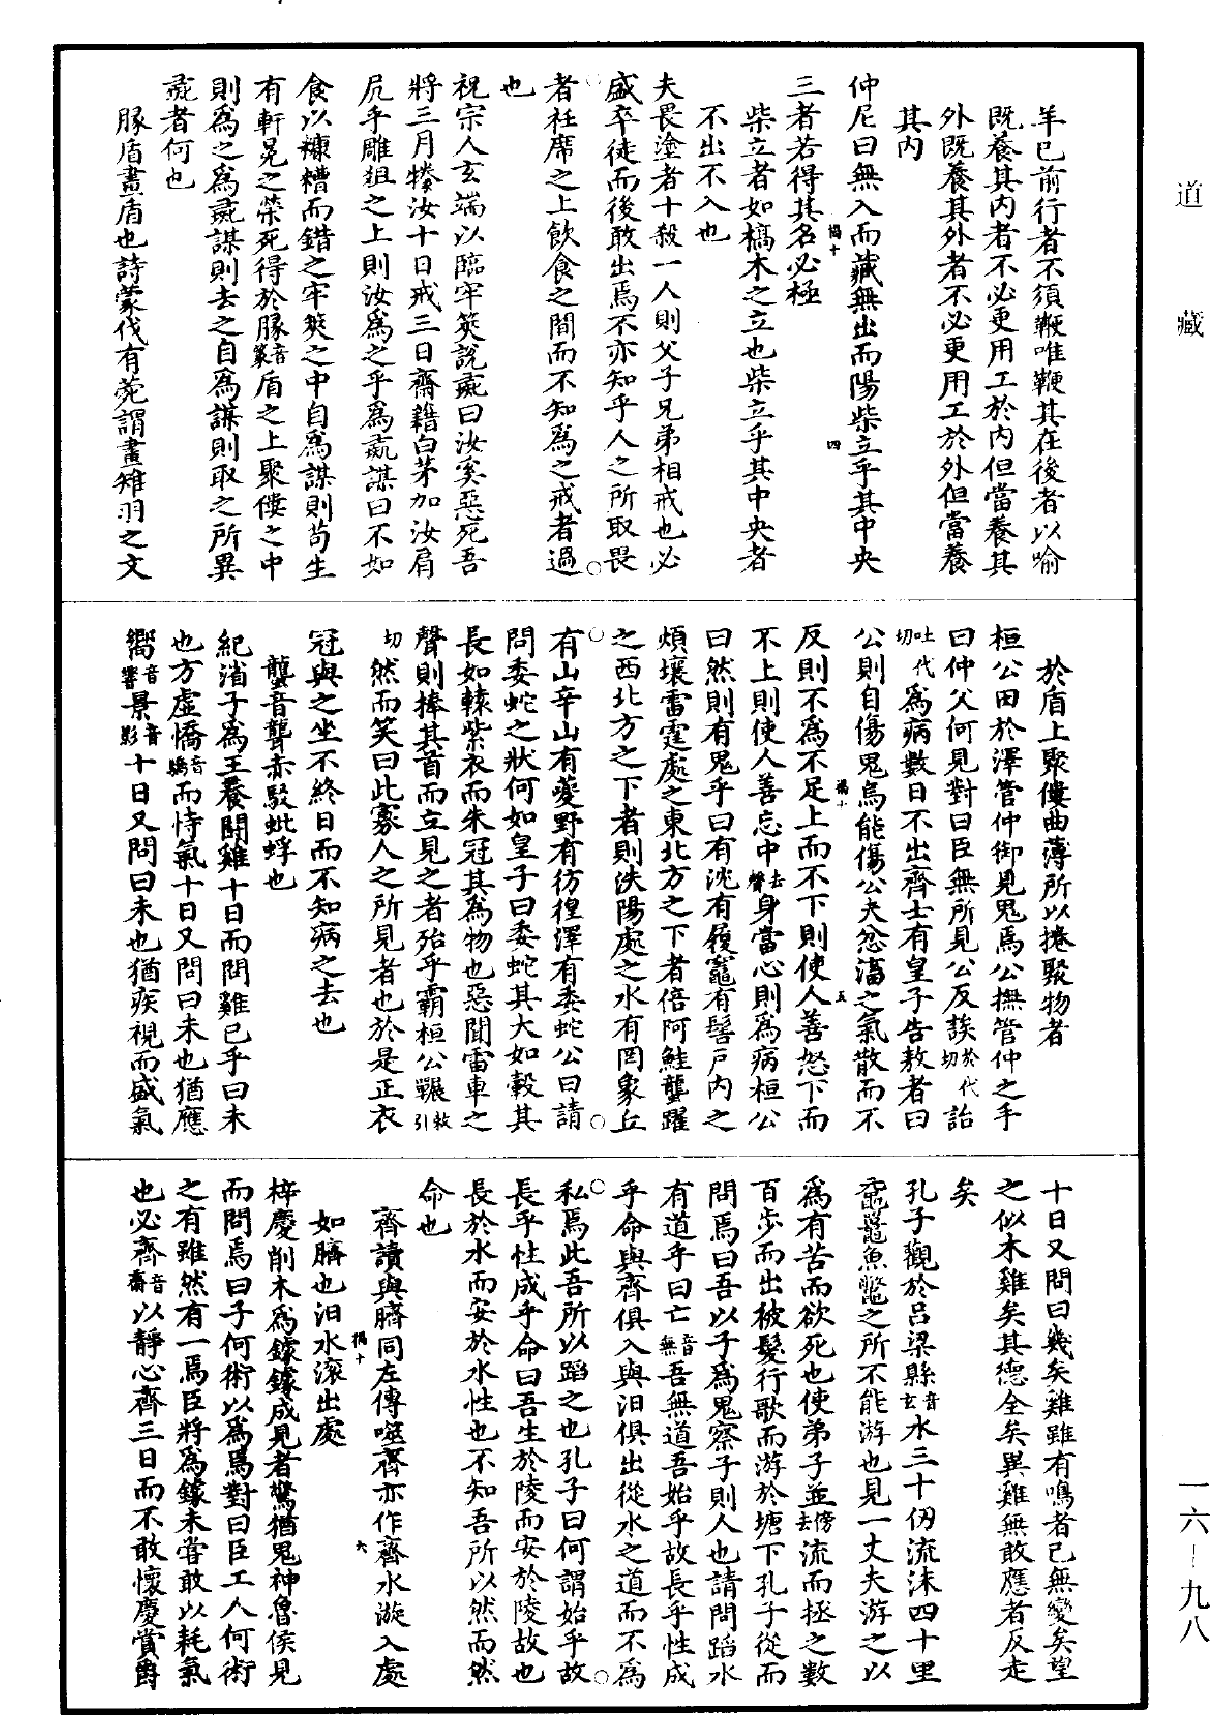 道藏
羊已前行者不須鞭唯鞭其在後者以喻
既養其內者不必更用工於內但當養其
外既養其外者不必更用工於外但當養
其內
仲尼曰無入而藏無出而陽柴立乎其中央
三者若得其名必極
柴立者如槁木之立也柴立乎其中央者
不出不入也
夫畏塗者十殺一人則父子兄弟相戒也必
盛卒徒而後敢出焉不亦知乎人之所取畏
者衽席之上飲食之間而不知為之戒者過
也
祝宗人玄端以臨牢筴說彘曰汝奚惡死吾
將三月㹖汝十日戒三日齋藉白茅加汝肩
尻乎雕俎之上則汝為之乎為彘謀曰不如
食以糠糟而錯之牢筴之中自為謀則苟生
有軒冕之榮死得於腞音篆盾之上聚僂之中
則為之為彘謀則去之自為謀則取之所異
彘者何也
腞盾畫盾也詩蒙伐有菀謂畫雉羽之文
於盾上聚僂曲薄所以捲聚物者
桓公田於澤管仲御見鬼焉公撫管仲之手
曰仲父何見對曰臣無所見公反誒於代切詒
吐代切為病數日不出齊士有皇子告敖者曰
公則自傷鬼烏能傷公夫忿滀之氣散而不
反則不為不足上而不下則使人善怒下而
不上則使人善忘中去聲身當心則為病桓公
曰然則有鬼乎曰有沈有履竈有髻戶內之
煩壤雷霆處之東北方之下者倍阿鮭蠪躍
之西北方之下者則泆陽處之水有罔象丘
有山辛山有夔野有彷徨澤有委蛇公曰請
問委蛇之狀何如皇子曰委蛇其大如轂其
長如轅紫衣而朱冠其為物也惡聞雷車之
聲則捧其首而立見之者殆乎霸桓公囅敕引
切然而笑曰此寡人之所見者也於是正衣
冠與之坐不終日而不知病之去也
蠪音聾赤駁蚍蜉也
紀渻子為王養鬪雞十日而問雞已乎曰未
也方虛憍音驕而恃氣十日又問曰未也猶應
嚮音響景音影十日又問曰未也猶疾視而盛氣
十日又問曰幾矣雞雖有鳴者已無變矣望
之似木雞矣其德全矣異雞無敢應者反走
矣
孔子觀於呂梁縣音玄水三十仞流沫四十里
黿鼉魚鼈之所不能游也見一丈夫游之以
為有苦而欲死也使弟子並傍去流而拯之數
百步而出被髮行歌而游於塘下孔子從而
問焉曰吾以子為鬼察子則人也請問蹈水
有道乎曰亡音無吾無道吾始乎故長乎性成
乎命與齊俱入與汩俱出從水之道而不為
私焉此吾所以蹈之也孔子曰何謂始乎故
長乎性成乎命曰吾生於陵而安於陵故也
長於水而安於水性也不知吾所以然而然
命也
齊讀與臍同左傳噬齊亦作齊水漩入處
如臍也汨水滾出處
梓慶削木為鐻鐻成見者驚猶鬼神魯侯見
而問焉曰子何術以為焉對曰臣工人何術
之有雖然有一焉臣將為鐻未嘗敢以耗氣
也必齊音齋以靜心齊三日而不敢懷慶賞爵
一六—九八